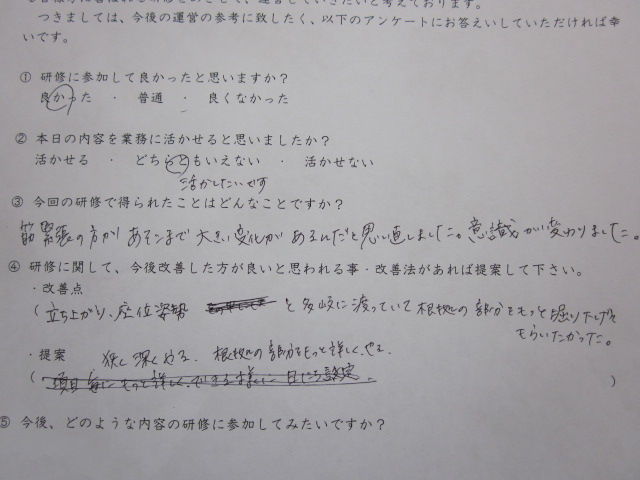 つきましては、今後の運営の参考に致したく、以下のアンケートにお答えいしていただければ幸
いです。
① 研修に参加して良かったと思いますか？
良かった ・ 普通 ・ 良くなかった
② 本日の内容を業務に活かせると思いましたか？
活かせる ・ どちらともいえない ・ 活かせない
活かしたいです
③ 今回の研修で得られたことはどんなことですか？
筋緊張の方があそこまで大きい変化があるんだと思い直しました。意識が変わりました。
④ 研修に関して、今後改善した方が良いと思われる事・改善法があれば提案して下さい。
・改善点
(立ち上がり、座位姿勢 と多岐に渡っていて根拠の部分をもっと掘り下げて
もらいたかった。
・提案 狭く深くやる。根拠の部分をもっと詳しくやる。
( 項目毎にもっと詳しく )
⑤ 今後、どのような内容の研修に参加してみたいですか？